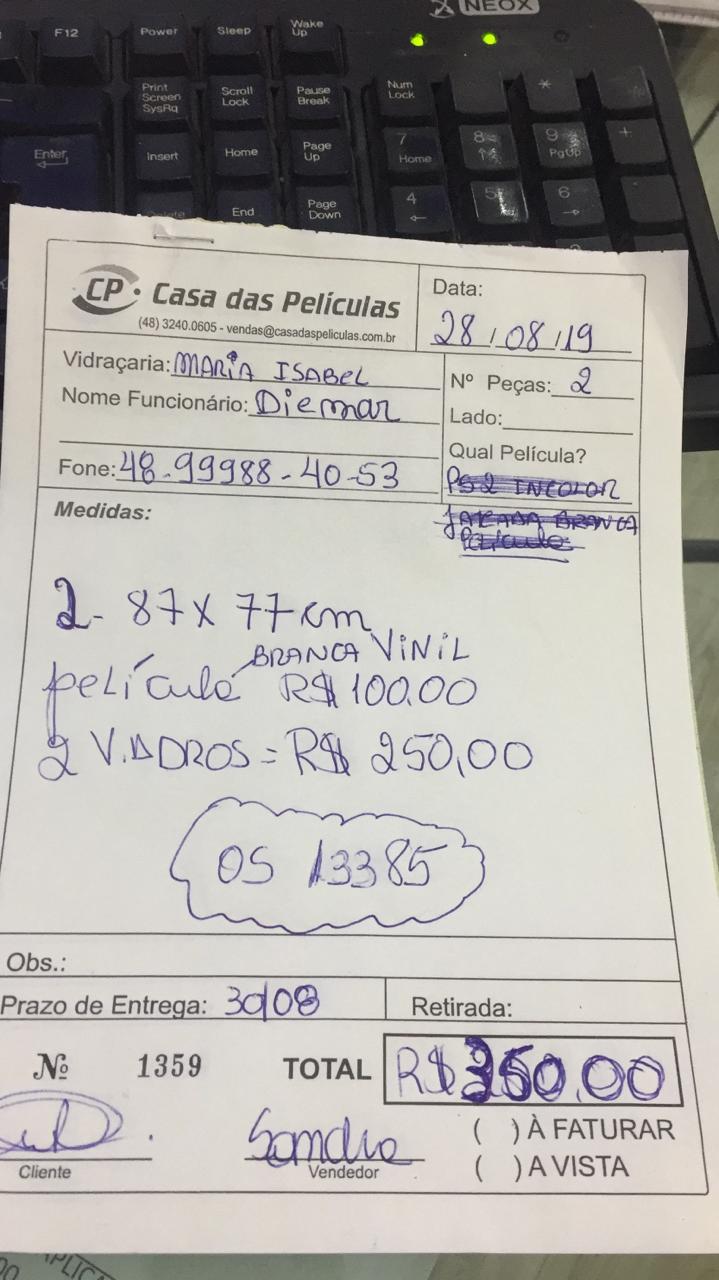 NEOX
F12
Power
Sleep
Wake Up
Print Screen SysRq
Scroll Lock
Pause Break
Num Lock
*
Enter
Insert
Home
Page Up
7 Home
8
9 PgUp
+
End
Page Down
4
5
6
CP Casa das Películas
(48) 3240.0605 - vendas@casadaspeliculas.com.br
Data:
28/08/19
Vidraçaria: MARIA ISABEL
Nº Peças: 2
Nome Funcionário: Diemar
Lado:
Qual Película?
Fone: 48-99988-40-53
PS2 INCOLOR
BRANCA
Película
Medidas:
2- 87 x 77 cm
BRANCA VINIL
película R$ 100.00
2 VIDROS = R$ 250,00
OS 13385
Obs.:
Prazo de Entrega: 30/08
Retirada:
Nº 1359
TOTAL R$ 350.00
Sandra
( ) À FATURAR
Cliente
Vendedor
( ) A VISTA